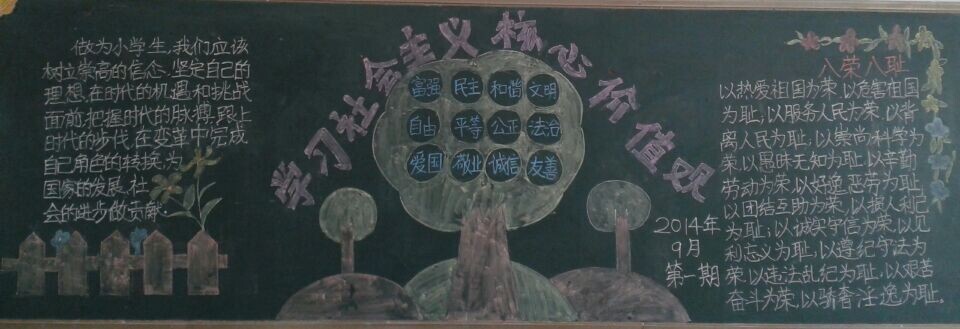 做为小学生,我们应该
树拉崇高的信念,坚定自己的
理想,在时代的机遇和挑战
面前,把握时代的脉搏,跟上
时代的步伐,在变革中完成
自己角色的转换,为
国家的发展,社
会的进步做贡献。
学习社会主义核心价值观
富强 民主 和谐 文明
自由 平等 公正 法治
爱国 敬业 诚信 友善
2014年
9月
第一期
八荣八耻
以热爱祖国为荣,以危害祖国
为耻;以服务人民为荣,以背
离人民为耻;以崇尚科学为
荣,以愚昧无知为耻;以辛勤
劳动为荣,以好逸恶劳为耻;
以团结互助为荣,以损人利己
为耻;以诚实守信为荣,以见
利忘义为耻;以遵纪守法为
荣,以违法乱纪为耻;以艰苦
奋斗为荣,以骄奢淫逸为耻。